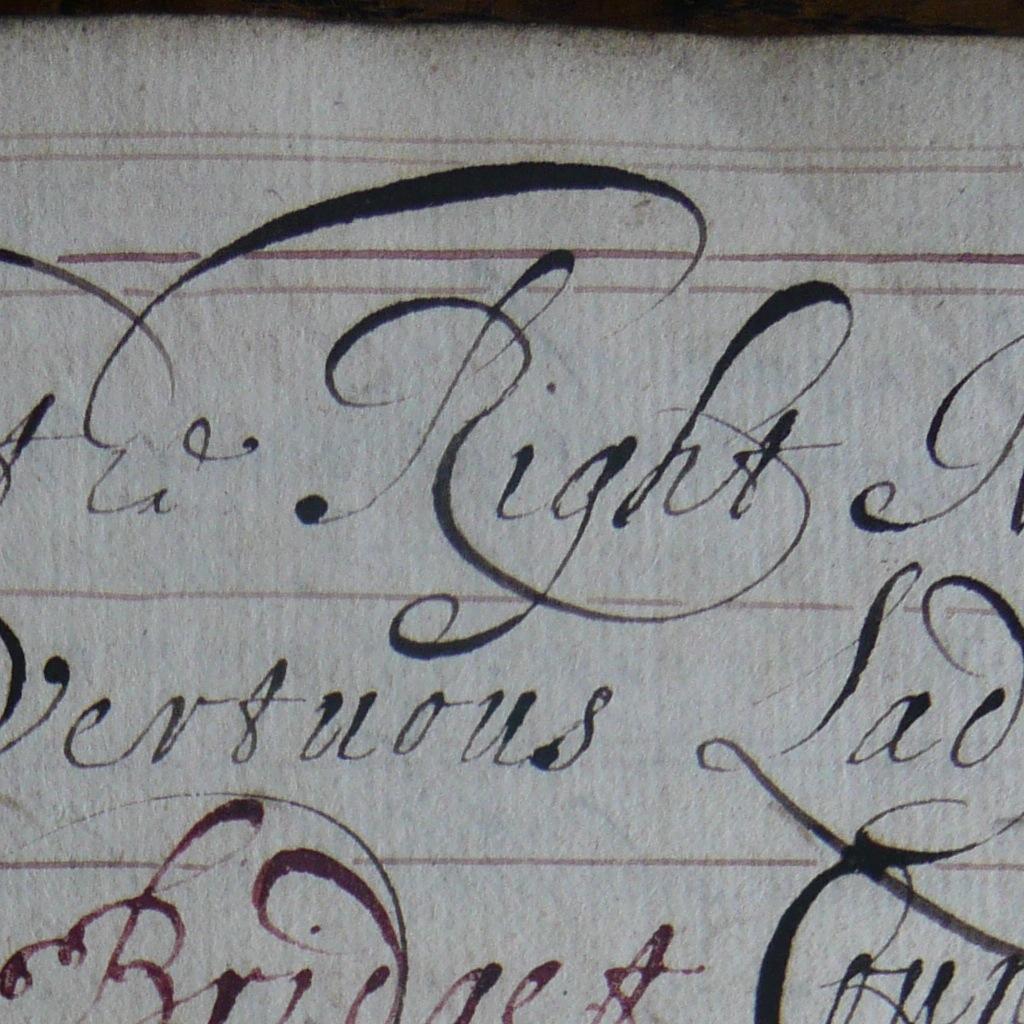 the Right
Vertuous Lad
Bridget Coun